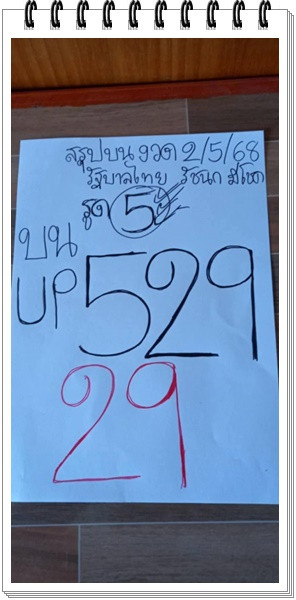 สรุปบน งวด 2/5/68
รัฐบาลไทย รัชนก มีโชค
รูด 5
บน
UP 529
29